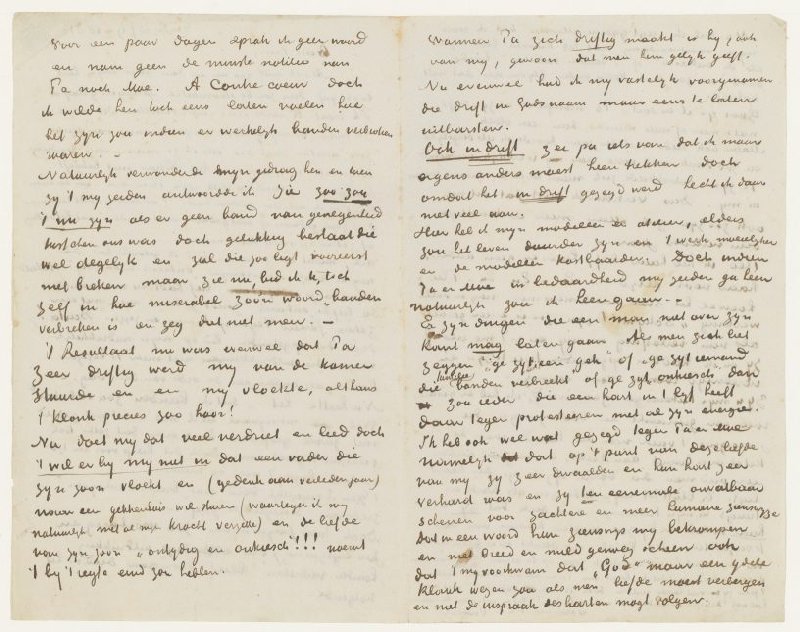 Voor een paar dagen sprak ik geen woord
en nam geen de minste notitie van
Pa noch Moe. A Contre coeur doch
ik wilde hen toch eens laten voelen hoe
het zijn zou indien er werkelijk banden verbroken
waren. –
Natuurlijk verwonderde mijn gedrag hen en toen
zij 't mij zeiden antwoordde ik Zie zoo zou
't nu zijn als er geen band van genegenheid
tusschen ons was doch gelukkig bestaat die
wel degelijk en zal die zoo ligt vooreerst
niet breken maar zie nu, bid ik U, toch
zelf in hoe miserabel zoo'n woord "banden
verbreken" is en zeg dat niet meer. –
't Resultaat nu was evenwel dat Pa
Zeer driftig werd mij van de kamer
stuurde en en mij vloekte, althans
't klonk precies zoo hoor!
Nu doet mij dat veel verdriet en leed doch
't wil er bij mij niet in dat een vader die
zijn zoon vloekt en (gedenk aan verleden jaar)
naar een gekkenhuis wil sturen (waartegen ik mij
natuurlijk met al mijn kracht verzette) en de liefde
van zijn zoon "ontijdig en onkiesch"!!! noemt
't bij 't regte eind zou hebben.
Wanneer Pa zich driftig maakt is hij, ook
van mij, gewoon dat men hem gelijk geeft.
Nu evenwel had ik mij vastelijk voorgenomen
die drift in Godsnaam maar eens te laten
uitbarsten.
Ook in drift zei pa iets van dat ik maar
ergens anders moest heen trekken doch
omdat het in drift gezegd werd hecht ik daar
niet veel aan.
Hier heb ik mijn modellen en atelier, elders
zou het leven duurder zijn en 't werk moeielijker
en de modellen kostbaarder. Doch indien
Pa en Moe in bedaardheid mij zeiden ga heen
natuurlijk zou ik heengaan. –
Er zijn dingen die een man niet over zijn
kant mag laten gaan. Als men zich liet
zeggen "ge zijt een gek" of "ge zijt iemand
die familiebanden verbreekt" of "ge zijt onkiesch" dan
zou ieder die een hart in 't lijf heeft
daar tegen protesteeren met al zijn energie.
Ik heb ook wel wat gezegd tegen Pa en Moe
namelijk dat op 't punt van deze liefde
van mij zij zeer dwaalden en hun hart zeer
verhard was en zij ten eenenmale onvatbaar
schenen voor zachtere en meer humane zienswijze
dat in een woord hun zienswijs mij bekrompen
en niet breed en mild genoeg scheen ook
dat 't mij voorkwam dat "God" maar een ijdele
klank wezen zou als men liefde moest verbergen
en niet de inspraak des harten mogt volgen.